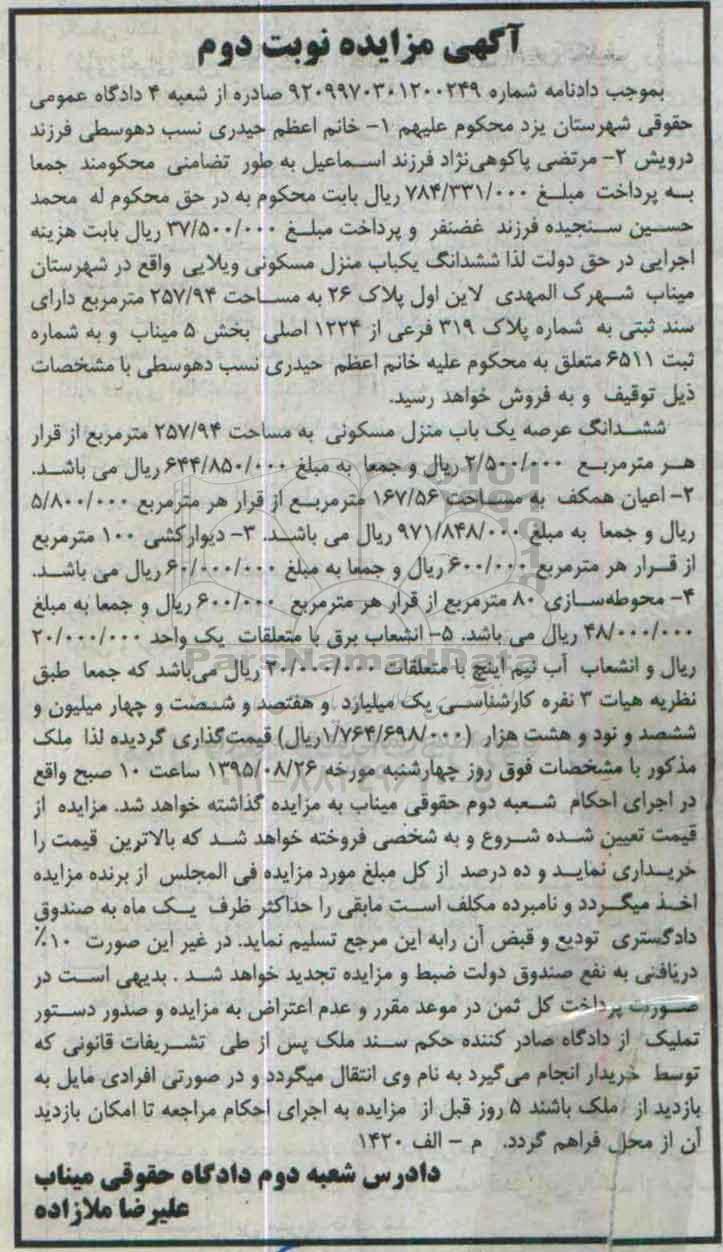 آگهی مزایده نوبت دوم
بموجب دادنامه شماره ۹۲۰۹۹۷۰۳۰۱۲۰۰۲۴۹ صادره از شعبه ۴ دادگاه عمومی
حقوقی شهرستان یزد محکوم علیهم ۱- خانم اعظم حیدری نسب دهوسطی فرزند
درویش ۲- مرتضی پاکوهی‌نژاد فرزند اسماعیل به طور تضامنی محکومند جمعا
به پرداخت مبلغ ۷۸۴/۳۳۱/۰۰۰ ریال بابت محکوم به در حق محکوم له محمد
حسین سنجیده فرزند غضنفر و پرداخت مبلغ ۳۷/۵۰۰/۰۰۰ ریال بابت هزینه
اجرایی در حق دولت لذا ششدانگ یکباب منزل مسکونی ویلایی واقع در شهرستان
میناب شهرک المهدی لاین اول پلاک ۲۶ به مساحت ۲۵۷/۹۴ مترمربع دارای
سند ثبتی به شماره پلاک ۳۱۹ فرعی از ۱۲۲۴ اصلی بخش ۵ میناب و به شماره
ثبت ۶۵۱۱ متعلق به محکوم علیه خانم اعظم حیدری نسب دهوسطی با مشخصات
ذیل توقیف و به فروش خواهد رسید.
ششدانگ عرصه یک باب منزل مسکونی به مساحت ۲۵۷/۹۴ مترمربع از قرار
هر مترمربع ۲/۵۰۰/۰۰۰ ریال و جمعا به مبلغ ۶۴۴/۸۵۰/۰۰۰ ریال می باشد.
۲- اعیان همکف به مساحت ۱۶۷/۵۶ مترمربع از قرار هر مترمربع ۵/۸۰۰/۰۰۰
ریال و جمعا به مبلغ ۹۷۱/۸۴۸/۰۰۰ ریال می باشد. ۳- دیوارکشی ۱۰۰ مترمربع
از قرار هر مترمربع ۶۰۰/۰۰۰ ریال و جمعا به مبلغ ۶۰/۰۰۰/۰۰۰ ریال می باشد.
۴- محوطه‌سازی ۸۰ مترمربع از قرار هر مترمربع ۶۰۰/۰۰۰ ریال و جمعا به مبلغ
۴۸/۰۰۰/۰۰۰ ریال می باشد. ۵- انشعاب برق با متعلقات یک واحد ۲۰/۰۰۰/۰۰۰
ریال و انشعاب آب نیم اینچ با متعلقات ۲۰/۰۰۰/۰۰۰ ریال می‌باشد که جمعا طبق
نظریه هیات ۳ نفره کارشناسی یک میلیارد و هفتصد و شصت و چهار میلیون و
ششصد و نود و هشت هزار (۱/۷۶۴/۶۹۸/۰۰۰ریال) قیمت‌گذاری گردیده لذا ملک
مذکور با مشخصات فوق روز چهارشنبه مورخه ۱۳۹۵/۰۸/۲۶ ساعت ۱۰ صبح واقع
در اجرای احکام شعبه دوم حقوقی میناب به مزایده گذاشته خواهد شد. مزایده از
قیمت تعیین شده شروع و به شخصی فروخته خواهد شد که بالاترین قیمت را
خریداری نماید و ده درصد از کل مبلغ مورد مزایده فی المجلس از برنده مزایده
اخذ میگردد و نامبرده مکلف است مابقی را حداکثر ظرف یک ماه به صندوق
دادگستری تودیع و قبض آن رابه این مرجع تسلیم نماید. در غیر این صورت ۱۰٪
دریافتی به نفع صندوق دولت ضبط و مزایده تجدید خواهد شد . بدیهی است در
صورت پرداخت کل ثمن در موعد مقرر و عدم اعتراض به مزایده و صدور دستور
تملیک از دادگاه صادر کننده حکم سند ملک پس از طی تشریفات قانونی که
توسط خریدار انجام می‌گیرد به نام وی انتقال میگردد و در صورتی افرادی مایل به
بازدید از ملک باشند ۵ روز قبل از مزایده به اجرای احکام مراجعه تا امکان بازدید
آن از محل فراهم گردد. م - الف ۱۴۲۰
دادرس شعبه دوم دادگاه حقوقی میناب
علیرضا ملازاده
ParsNamadData